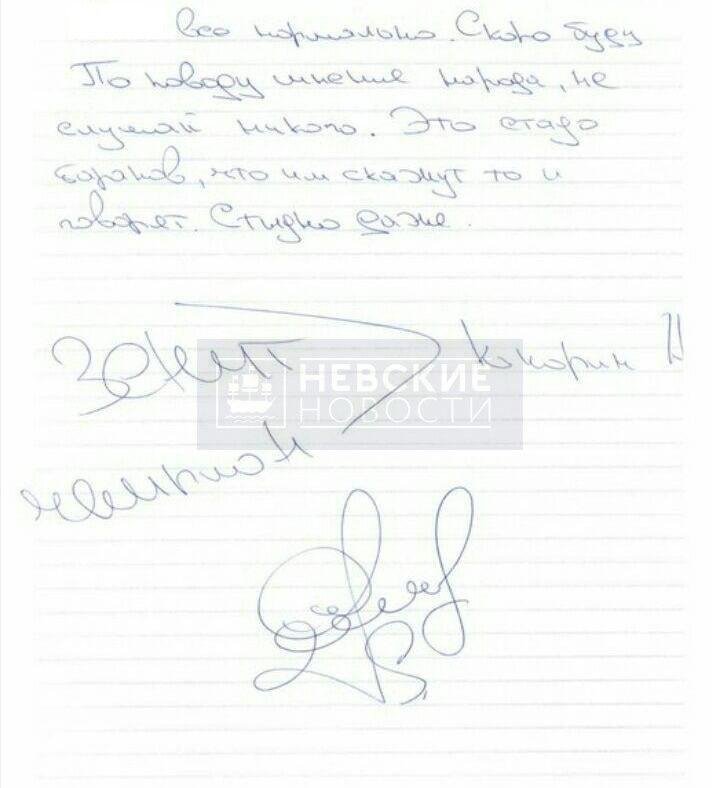 все нормально. Скоро буду
По поводу мнение народа, не
слушай никого. Это стадо
баранов, что им скажут то и
говорят. Стыдно даже.
Зенит Кокорин
НЕВСКИЕ
НОВОСТИ
чемпион